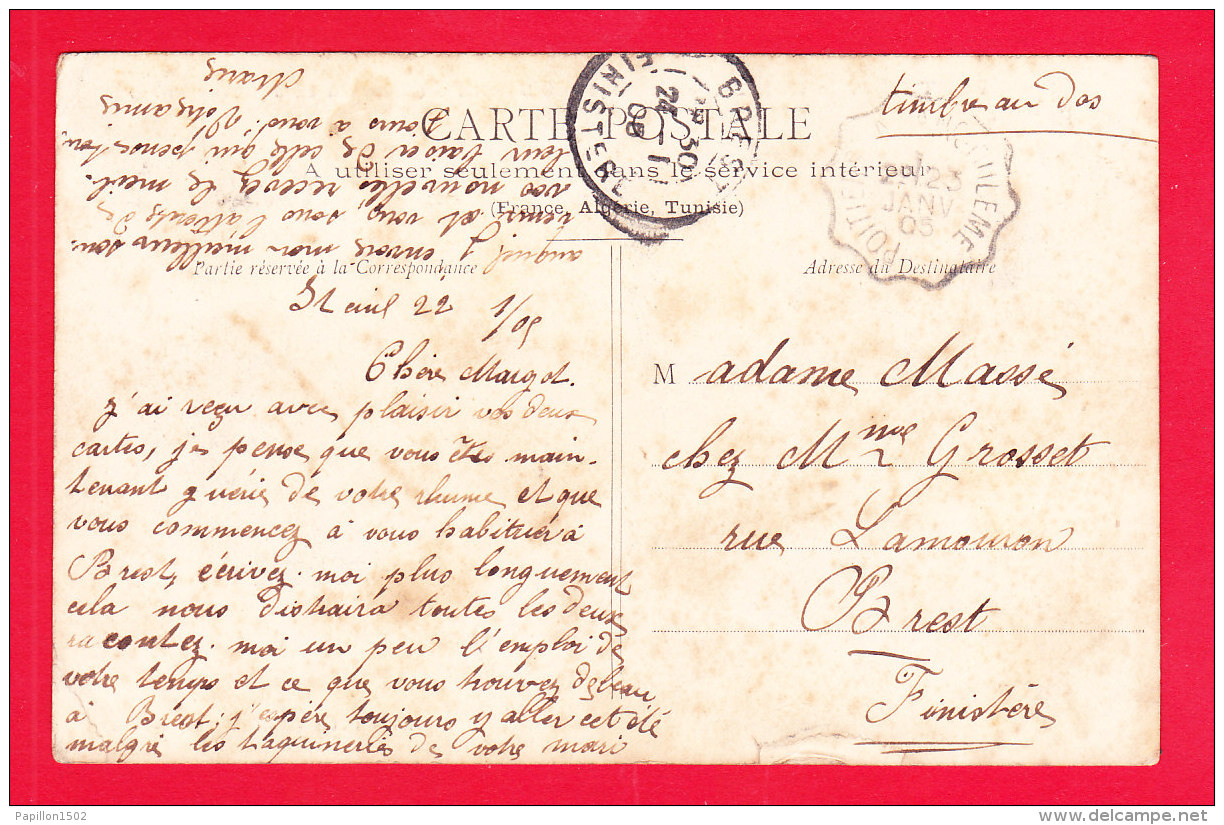 timbre au dos
CARTE POSTALE
A utiliser seulement dans le service intérieur
(France, Algérie, Tunisie)
BREST
FINISTERE
24 - 1
05
JANV
05
Partie réservée à la Correspondance
Adresse du Destinataire
22 1/05
Chère Margot.
j'ai reçu avec plaisir vos deux
cartes, je pense que vous êtes main-
tenant guérie de votre rhume et que
vous commencez à vous habituer à
Brest, écrivez-moi plus longuement
cela nous distraira toutes les deux
racontez-moi un peu l'emploi de
votre temps et ce que vous trouvez de beau
à Brest; j'espère toujours y aller cet été
malgré les taquineries de votre mari
auquel j'envoie mon meilleur sou-
venir et vous, sous l'attente de
vos nouvelles recevez le meil-
leur baiser de celle qui pense bien
à vous. Votre amie
Marie
M adame Massé
chez Mme Grosset
rue Lamouron
Brest
Finistère
Papillon1502
delcampe.net